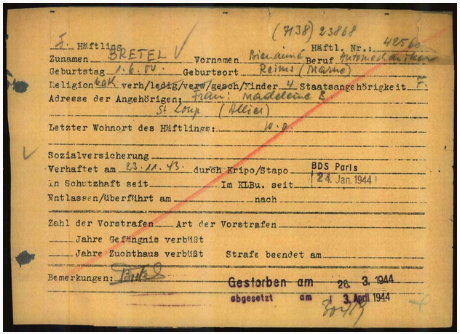 (7138) 23868
Z. Häftling Häftl. Nr.: 42560
Zunamen BRETEL Vornamen Beruf Automechaniker
Geburtstag 1.6.04. Geburtsort Reims (Marne)
Religion kath verh/ledig/verw/gesch/Kinder 4 Staatsangehörigkeit F.
Adresse der Angehörigen: Frau: Madeleine B.
St Loup (Allier)
Letzter Wohnort des Häftlings: w.o.
Sozialversicherung
Verhaftet am 23.11.43. durch Kripo/Stapo BDS Paris
in Schutzhaft seit Im KLBu. seit 24. Jan. 1944
Entlassen/überführt am nach
Zahl der Vorstrafen Art der Vorstrafen
Jahre Gefängnis verbüßt
Jahre Zuchthaus verbüßt Strafe beendet am
Bemerkungen: Bretel
Gestorben am 28. 3. 1944
abgesetzt am 3. April 1944